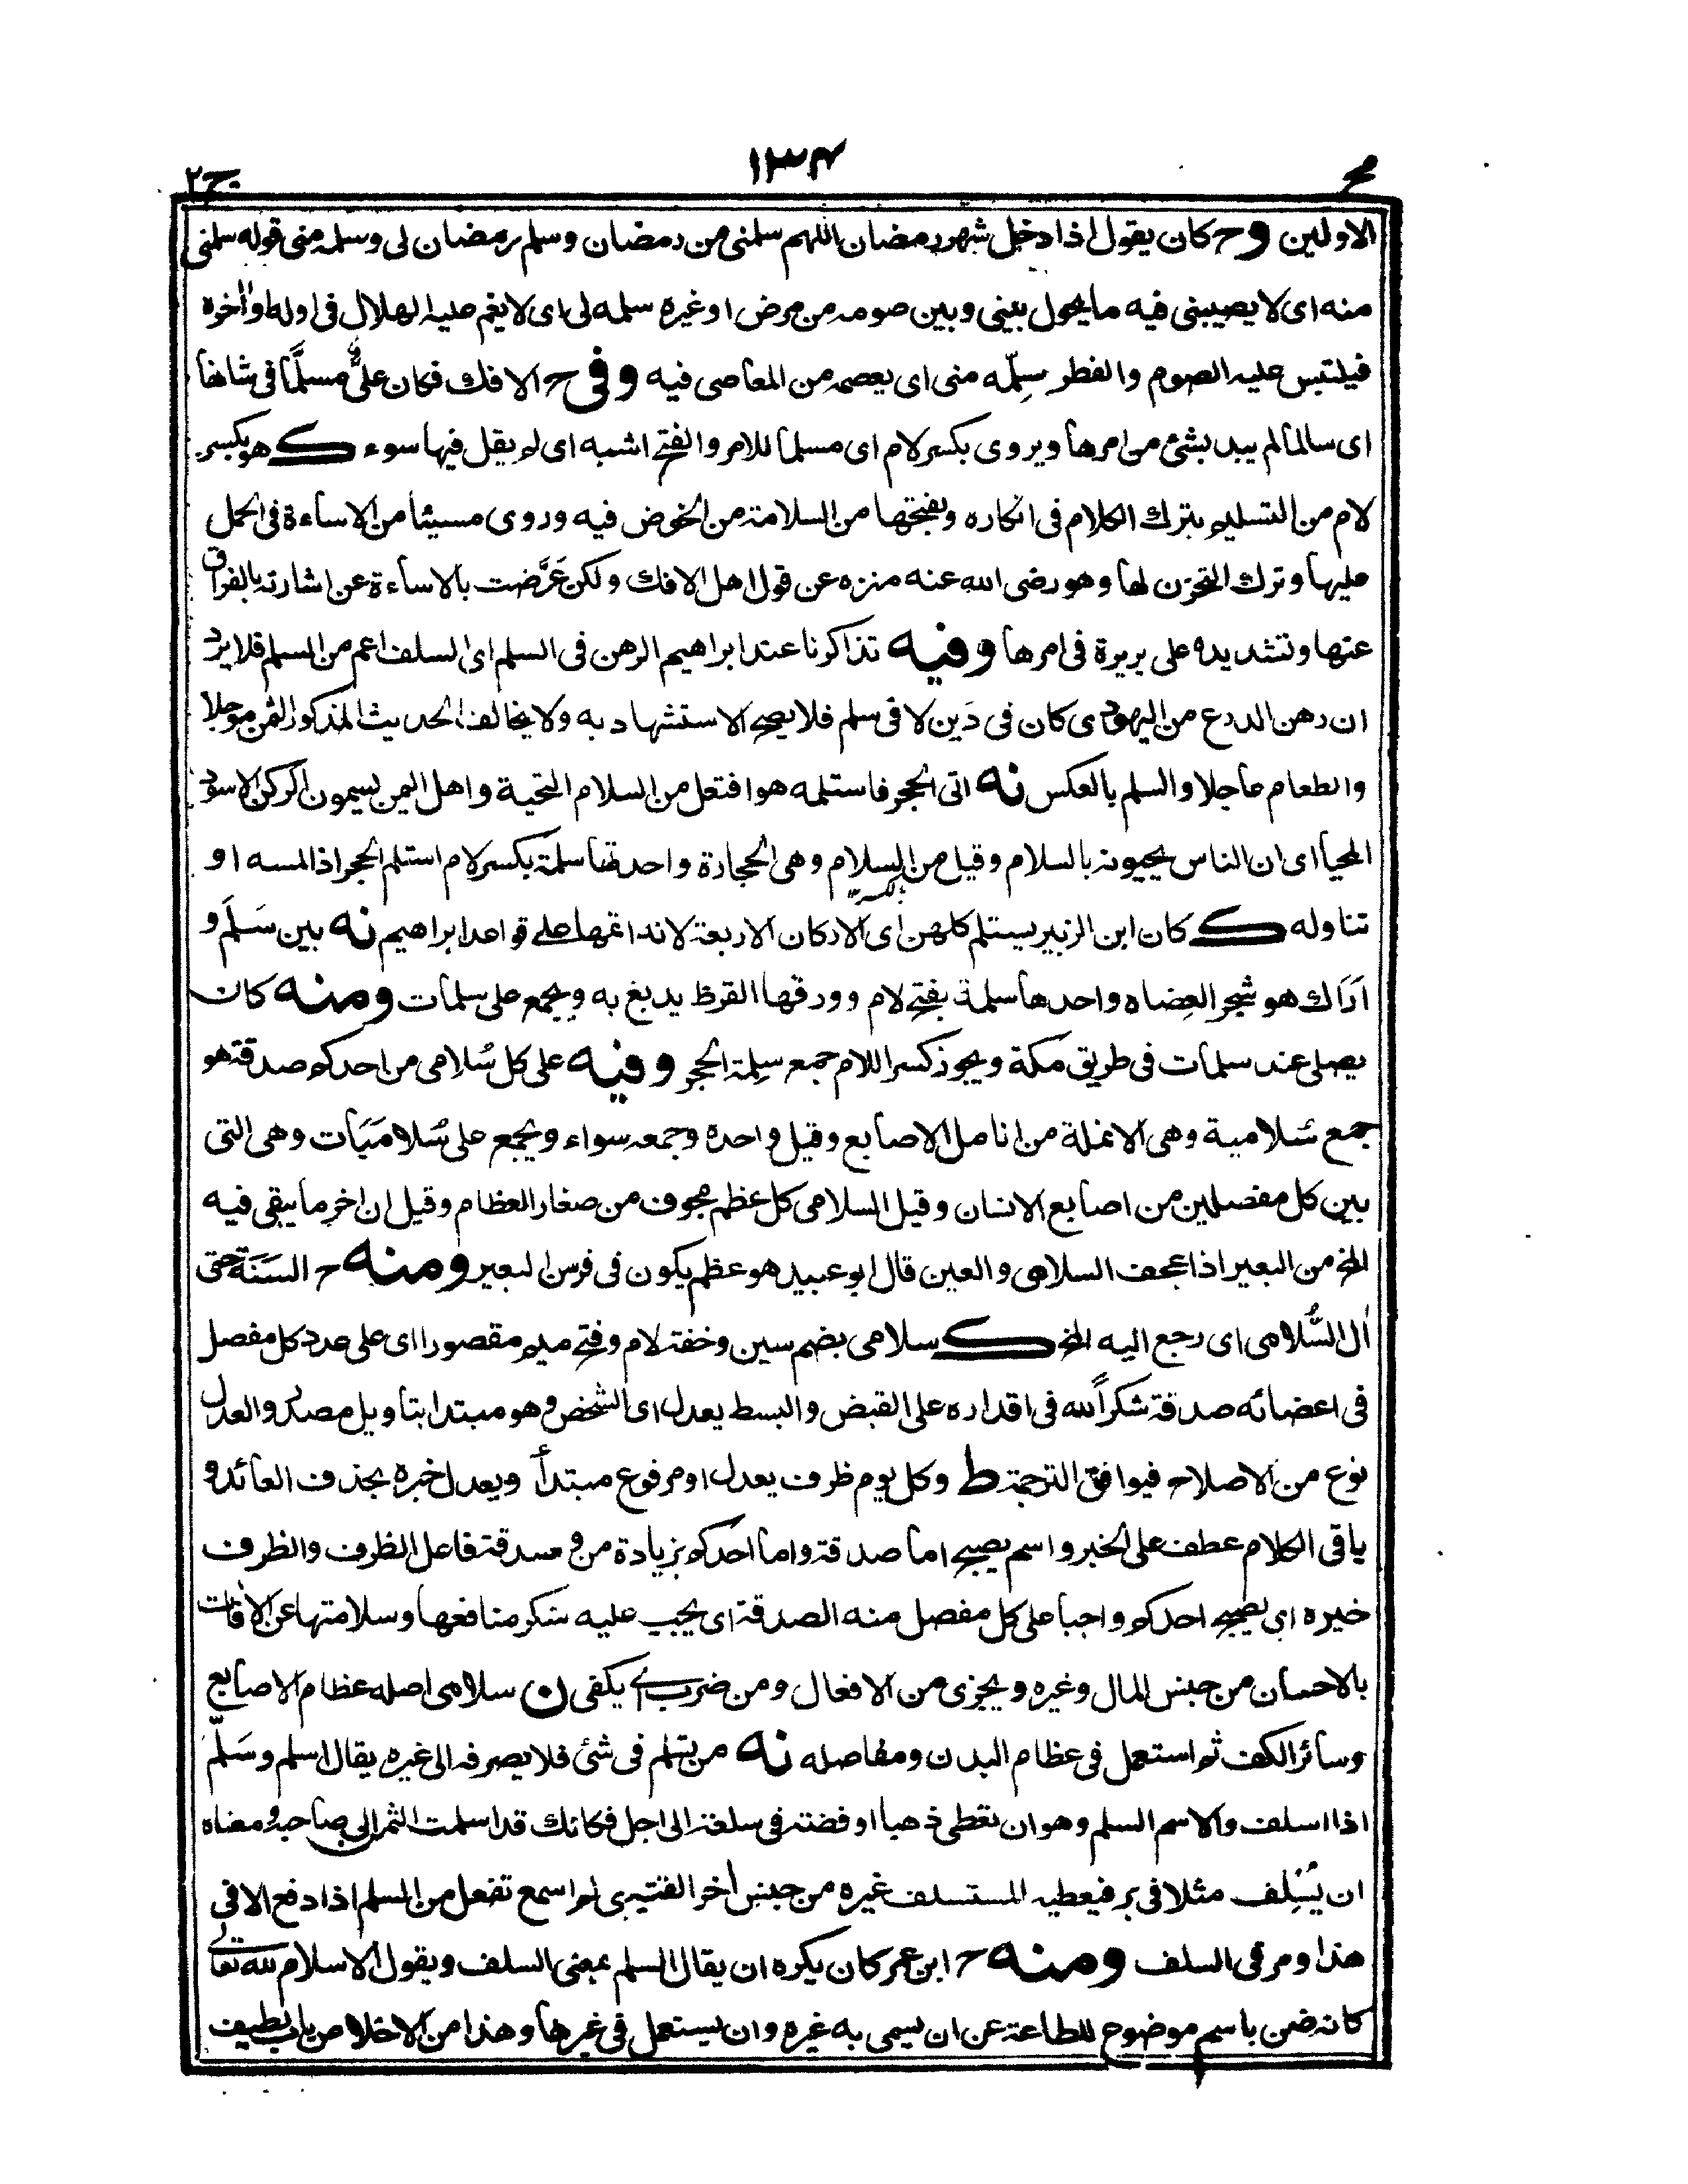 مجر ١٣٤ ج٢
الاولين وح كان يقول اذا دخل شهر رمضان اللهم سلمنى من رمضان وسلم رمضان لى وسلمه منى قوله سلمنى
منه اى لا يصيبنى فيه ما يحول بينى وبين صومه من مرض او غيره سلمه لى اى لا يغم عليه الهلال فى اوله او اٰخره
فيلتبس عليه الصوم والفطر سلّمه منى اى يعصمه من المعاصى فيه وفى ح الافك فكان علىٌّ مسلَّما فى شانها
اى سالما لم يبد بشئ من امرها ويروى بكسر لام اى مسلما للامر والفتح اشبه اى لم يقل فيها سوء ك هو بكسر
لام من التسليم بترك الكلام فى انكاره وبفتحها من السلامة من الخوض فيه وروى مسيئا من الاساءة فى الحمل
عليها وترك التحزن لها وهو رضى الله عنه منزه عن قول اهل الافك ولكن عَرَّضت بالاساءة عن اشارته بالفراق
عنها وتشديده على بريرة فى امرها وفيه تذاكرنا عند ابراهيم الرهن فى السلم اى السلف اعم من السلم فلا يرد
ان رهن الدرع من اليهودى كان فى دَين لا فى سلم فلا يصح الاستشهاد به ولا يخالف الحديث المذكور الثمن موجلا
والطعام عاجلا والسلم بالعكس نه اتى الحجر فاستلمه هو افتعل من السلام التحية واهل اليمن يسمون الركن الاسود
المحيا اى ان الناس يحيونه بالسلام وقيل من السلام بالكسر وهى الحجارة واحدتها سلمة بكسر لام استلم الحجر اذا لمسه او
تناوله ك كان ابن الزبير يستلم كلهن اى الاركان الاربعة لانه اتمها على قواعد ابراهيم نه بين سَلَم و
اَرَاك هو شجر العِضاه واحدها سلمة بفتح لام وورقها القرظ يدبغ به ويجمع على سلمات ومنه كان
يصلى عند سلمات فى طريق مكة ويجوز كسر اللام جمع سِلمة الحجر وفيه على كل سُلامى من احدكم صدقة هو
جمع سُلامية وهى الانملة من انامل الاصابع وقيل واحده وجمعه سواء ويجمع على سُلامَيَات وهى التى
بين كل مفصلين من اصابع الانسان وقيل السلامى كل عظم مجوف من صغار العظام وقيل ان اخر ما يبقى فيه
المخ من البعير اذا عجف السلامى والعين قال ابو عبيد هو عظم يكون فى فرسن البعير ومنه ح السَنَة حتى
اٰل السُّلامى اى رجع اليه المخ ك سلامى بضم سين وخفة لام وفتح ميم مقصورا اى على عدد كل مفصل
فى اعضائه صدقة شكراً لله فى اقداره على القبض والبسط يعدل اى الشخص وهو مبتدا بتاويل مصدر والعدل
نوع من الاصلاح فيوافق الترجمة ط وكل يوم ظرف يعدل او مرفوع مبتدأ ويعدل خبره بحذف العائد و
باقى الكلام عطف على الخبر واسم يصبح اما صدقة واما احدكم بزيادة من وصدقة فاعل الظرف والظرف
خبره اى يصبح احدكم واجبا على كل مفصل منه الصدقة اى يجب عليه شكر منافعها وسلامتها عن الاٰفات
بالاحسان من جنس المال وغيره ويجزى من الافعال ومن ضرب اى يكفى ن سلامى اصله عظام الاصابع
وسائر الكف ثم استعمل فى عظام البدن ومفاصله نه من تسلم فى شئ فلا يصرفه الى غيره يقال اسلم وسَلّم
اذا اسلف والاسم السلم وهو ان تعطى ذهبا او فضة فى سلعة الى اجل فكانك قد اسلمت الثمن الى صاحبه ومعناه
ان يُسْلِف مثلا فى بر فيعطيه المستسلف غيره من جنس اٰخر القتيبى لم اسمع تفعل من السلم اذا دفع الا فى
هذا ومر فى السلف ومنه ح ابن عمر كان يكره ان يقال السلم بمعنى السلف ويقول الاسلام لله تعالى
كانه ضن باسم موضوع للطاعة عن ان يسمى به غيره وان يستعمل فى غيرها وهذا من الاخلاص باب لطيف